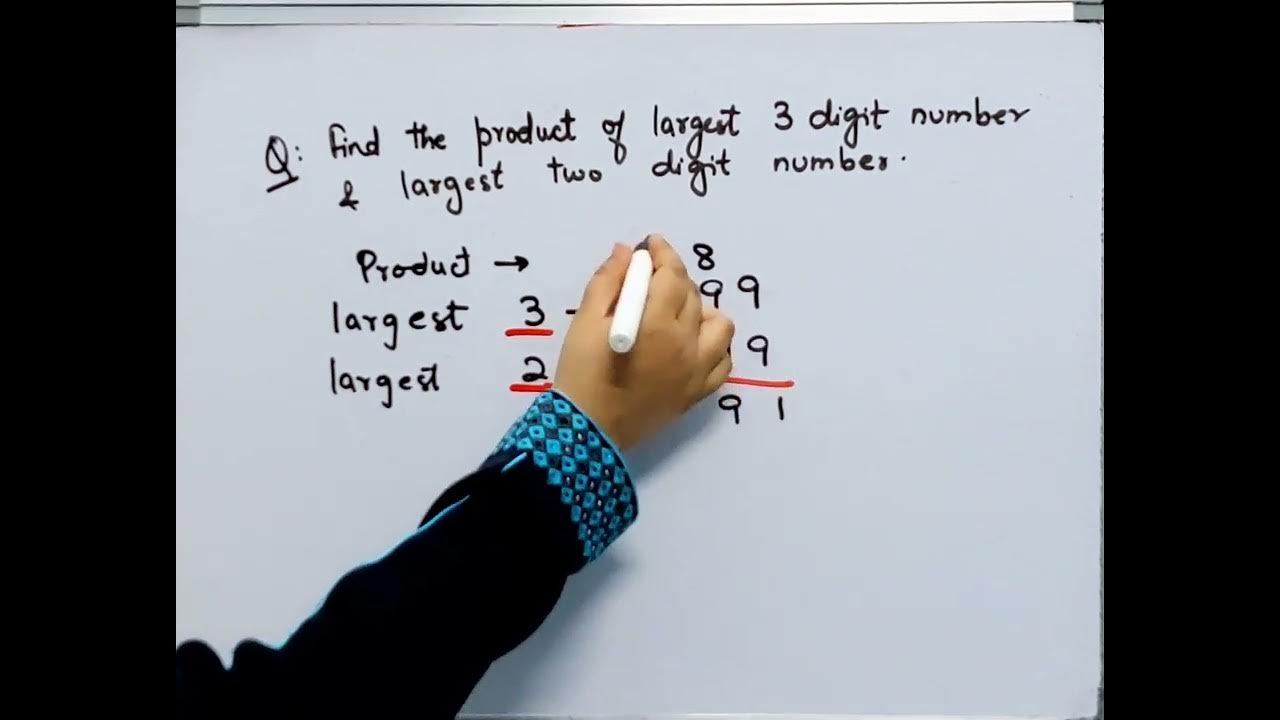 Q: Find the product of largest 3 digit number
& largest two digit number.
Product → 8
largest 3 - 9 9
largest 2 9
9 1